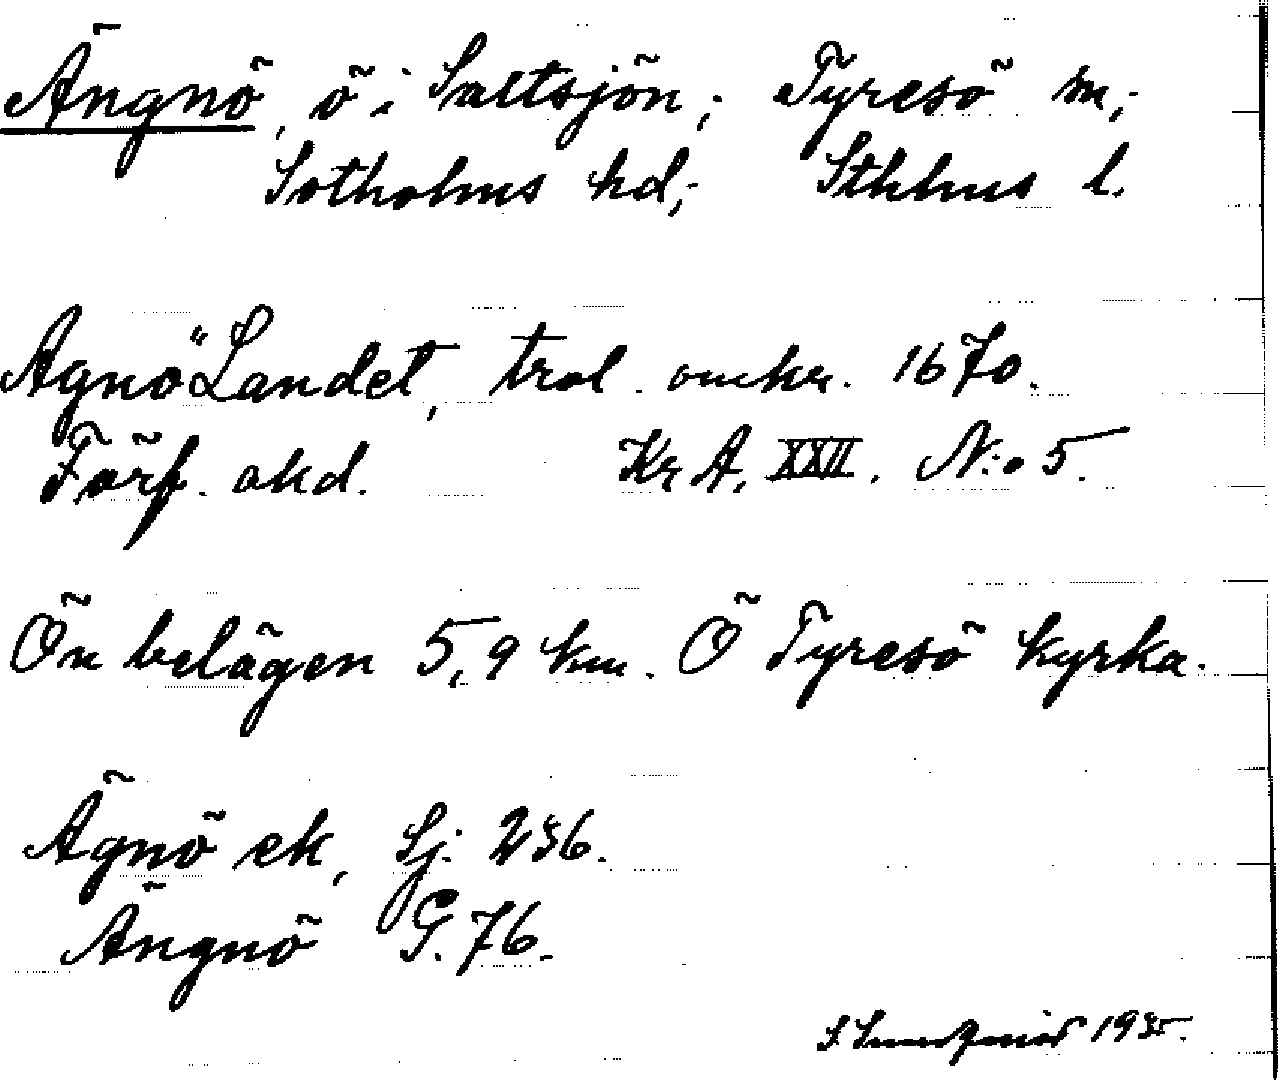 Ängnö, ö i Saltsjön; Tyresö sn;
Sotholms hd; Sthlms l.
Agnö Landet, trol. omkr. 1670.
Förf. okd. Kr A. XXII. N:o 5.
Ön belägen 5,9 km. Ö Tyresö kyrka.
Ägnö ek, Sj. 236.
Ängnö G. 76.
S. Lundqvist 1935.